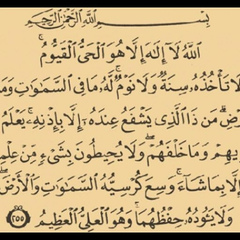 بِسْمِ ٱللَّهِ ٱلرَّحْمَٰنِ ٱلرَّحِيمِ
ٱللَّهُ لَآ إِلَٰهَ إِلَّا هُوَ ٱلْحَىُّ ٱلْقَيُّومُ ۚ
لَا تَأْخُذُهُۥ سِنَةٌ وَلَا نَوْمٌ ۚ لَّهُۥ مَا فِى ٱلسَّمَٰوَٰتِ وَمَا
رْضِ ۗ مَن ذَا ٱلَّذِى يَشْفَعُ عِندَهُۥٓ إِلَّا بِإِذْنِهِۦ ۚ يَعْلَمُ
يهِمْ وَمَا خَلْفَهُمْ ۖ وَلَا يُحِيطُونَ بِشَىْءٍ مِّنْ عِلْمِ
إِلَّا بِمَا شَآءَ ۚ وَسِعَ كُرْسِيُّهُ ٱلسَّمَٰوَٰتِ وَٱلْأَرْضَ ۖ
وَلَا يَـُٔودُهُۥ حِفْظُهُمَا ۚ وَهُوَ ٱلْعَلِىُّ ٱلْعَظِيمُ ٢٥٥